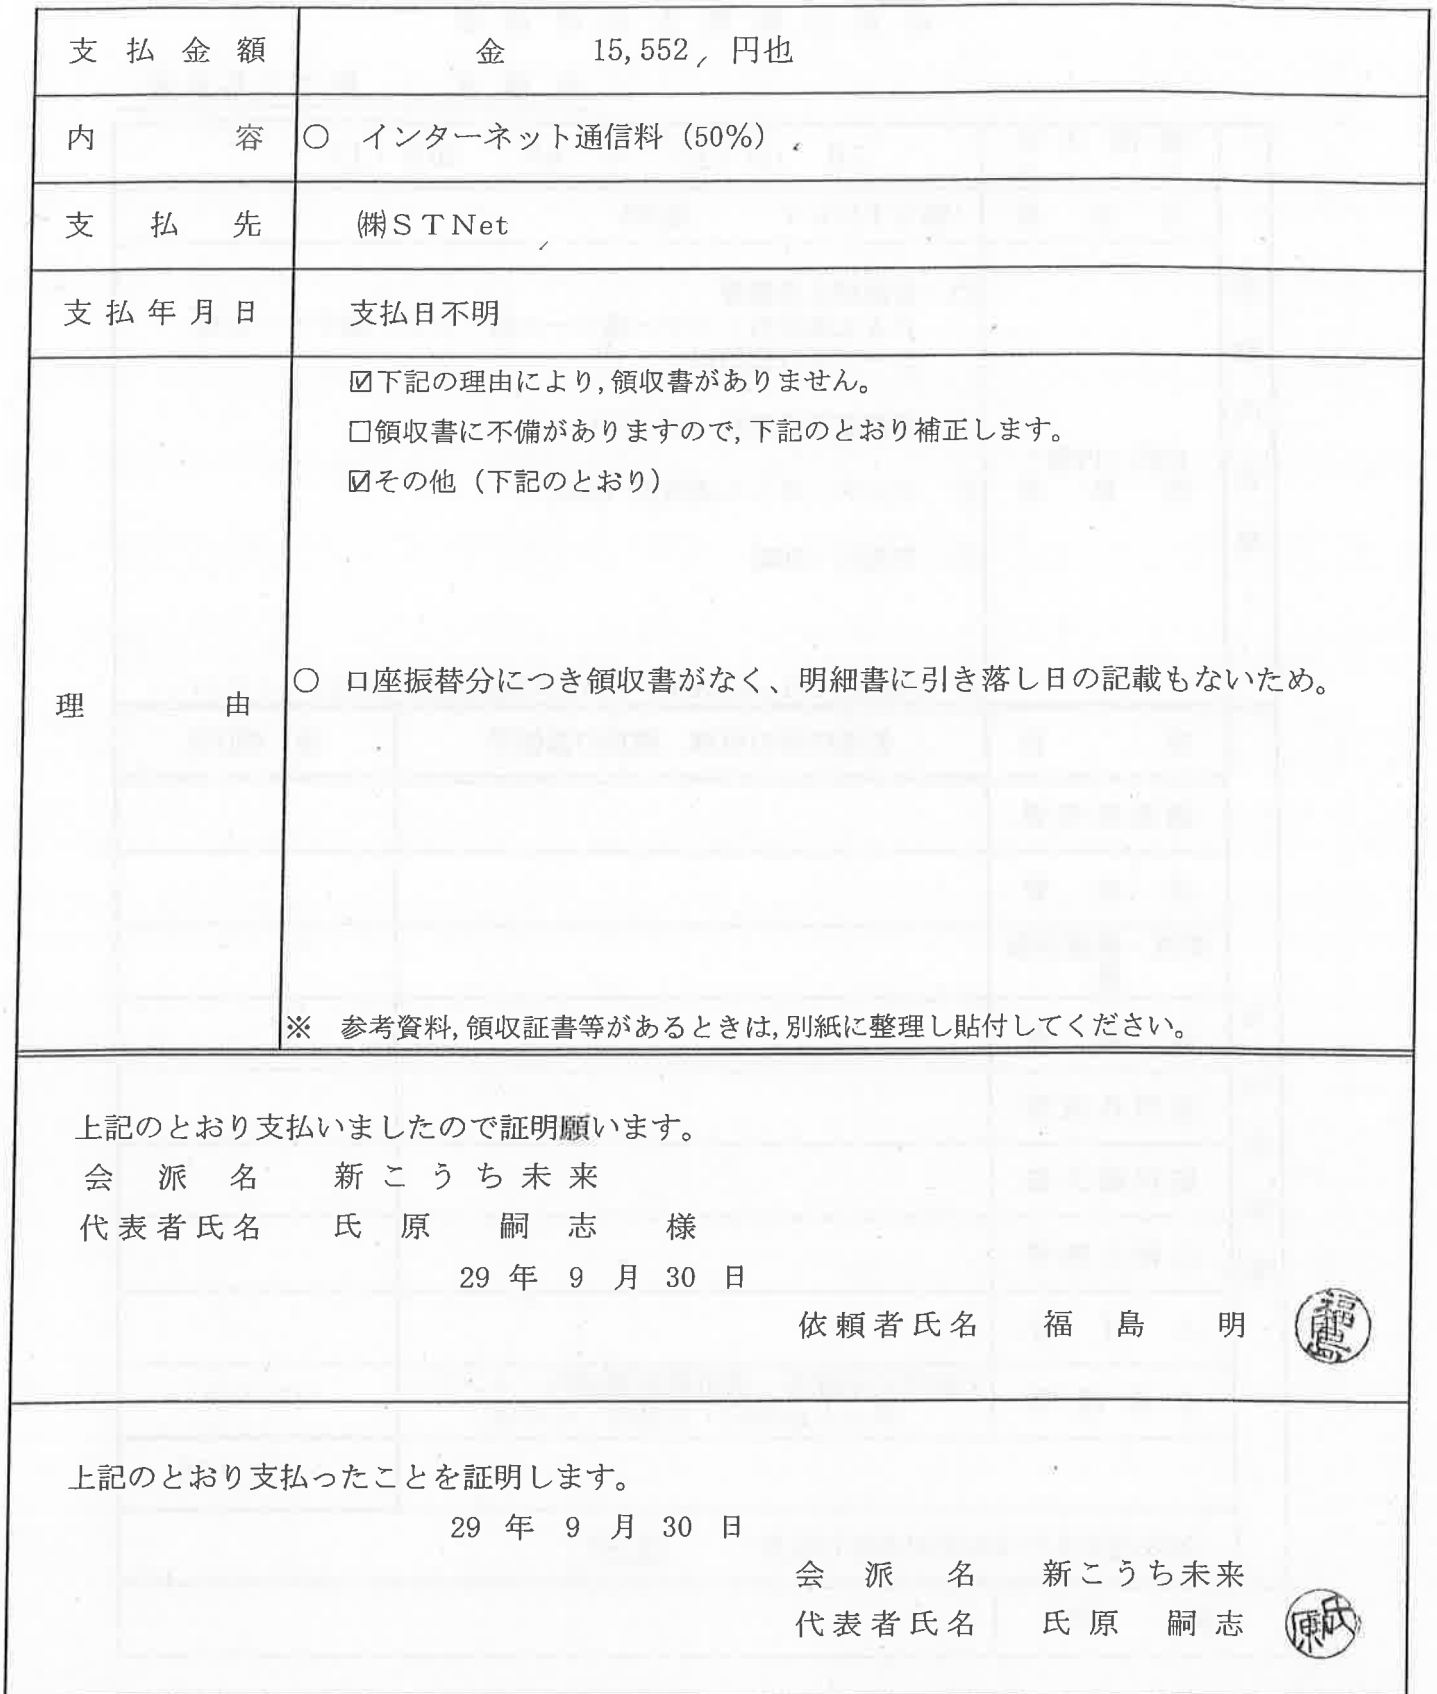 支払金額 金 15,552 円也
内容 ○ インターネット通信料（50％）
支払先 ㈱ＳＴNet
支払年月日 支払日不明
☑下記の理由により,領収書がありません。
□領収書に不備がありますので,下記のとおり補正します。
☑その他（下記のとおり）
理由 ○ 口座振替分につき領収書がなく、明細書に引き落し日の記載もないため。
※ 参考資料,領収証書等があるときは,別紙に整理し貼付してください。
上記のとおり支払いましたので証明願います。
会派名 新こうち未来
代表者氏名 氏原 嗣志 様
29 年 9 月 30 日
依頼者氏名 福島 明 福島
上記のとおり支払ったことを証明します。
29 年 9 月 30 日
会派名 新こうち未来
代表者氏名 氏原 嗣志 氏原